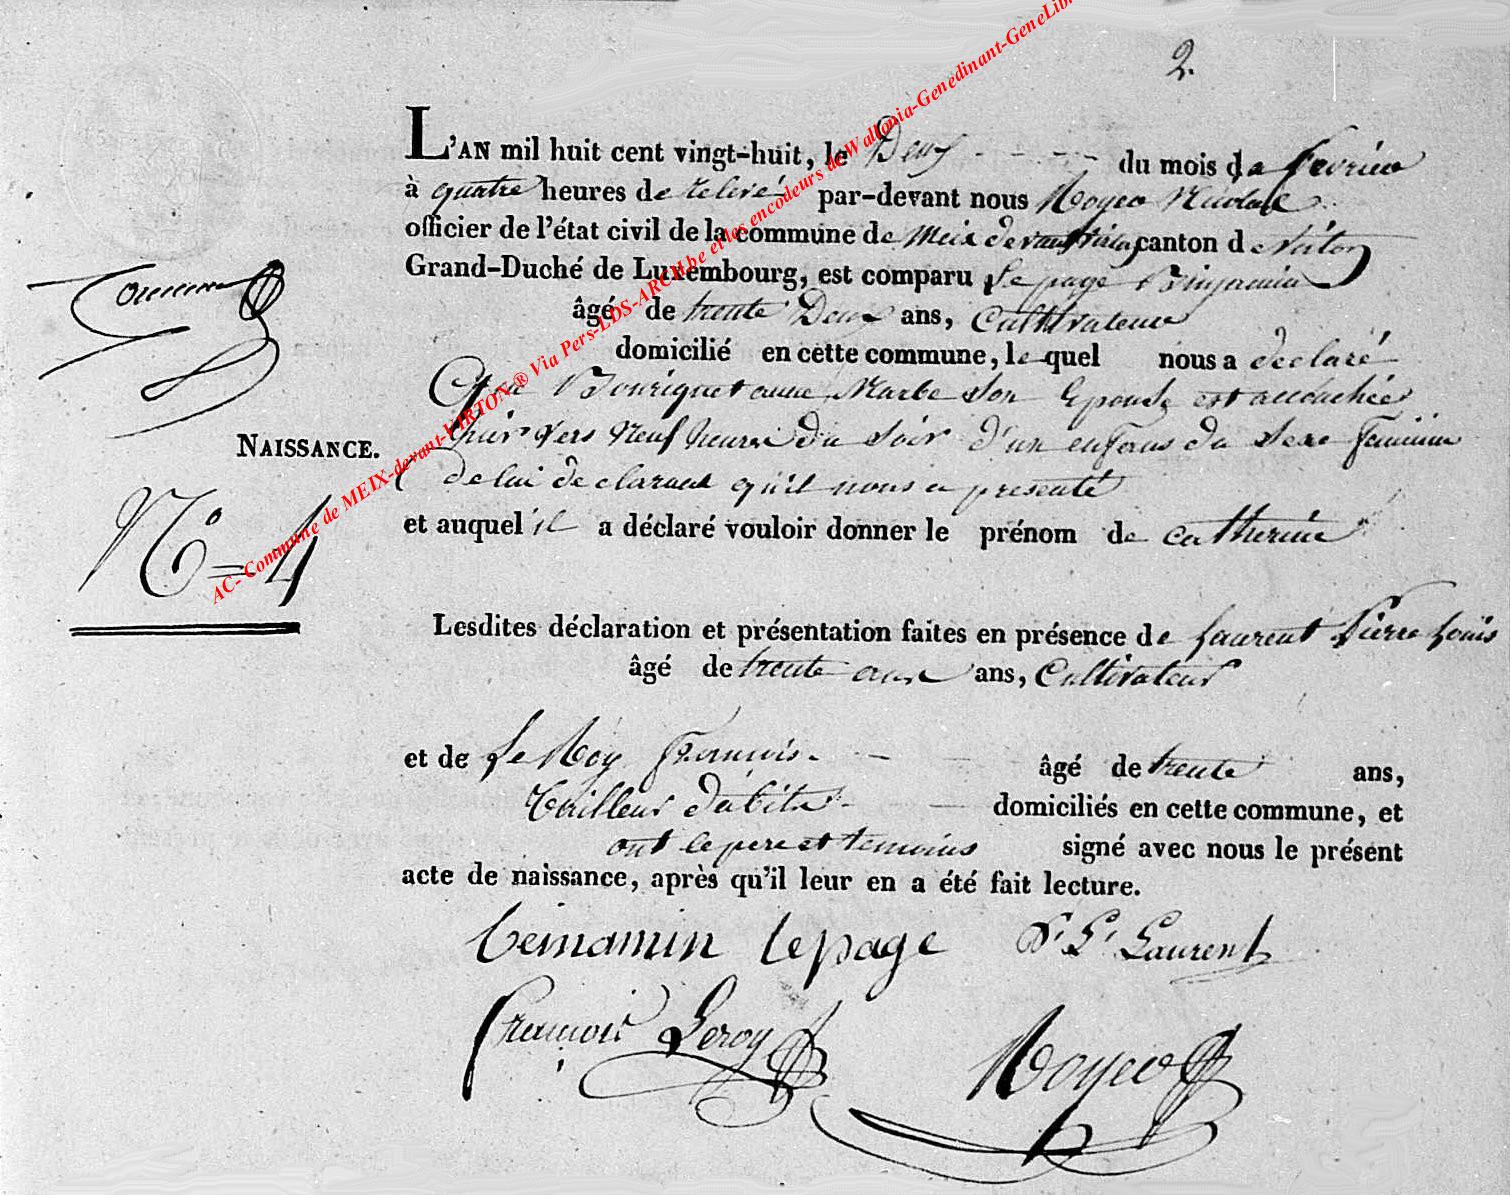 2.
L'AN mil huit cent vingt-huit, le Deux du mois de fevrier
à quatre heures de relevé par-devant nous Noyer Nicolas
officier de l'état civil de la commune de Meix devant virton canton de virton
Grand-Duché de Luxembourg, est comparu le page Binjamin
âgé de trente Deux ans, Cultivateur
domicilié en cette commune, lequel nous a declaré
Que Bouriquet anne Marie Son Epouse est accouchée
hier vers Neuf heures du Soir D'un enfans du Sexe feminin
De lui declarant qu'il nous a presenté
et auquel il a déclaré vouloir donner le prénom de catherine
NAISSANCE.
N° = 4
Lesdites déclaration et présentation faites en présence de Laurent Pierre Louis
âgé de trente ans, Cultivateur
et de Le Roy François âgé de trente ans,
Tailleur dabits domiciliés en cette commune, et
ont le pere et temoins signé avec nous le présent
acte de naissance, après qu'il leur en a été fait lecture.
beinamin lepage P. L. Laurent
François Leroy Noyer
AC- Commune de MEIX-devant-VIRTON ® Via Pers-LDS-ARCH.be et les encodeurs de Wallonia-Genedinant-GeneLib